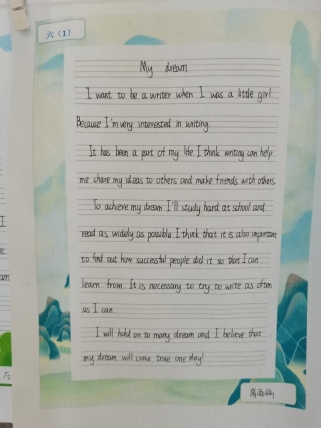 六（1）
My dream
I want to be a writer when I was a little girl.
Because I'm very interested in writing.
It has been a part of my life. I think writing can help
me share my ideas to others and make friends with others.
To achieve my dream I'll study hard at school and
read as widely as possible. I think that it is also important
to find out how successful people did it so that I can
learn from. It is necessary to try to write as often
as I can.
I will hold on to many dream and I believe that
my dream will come true one day!